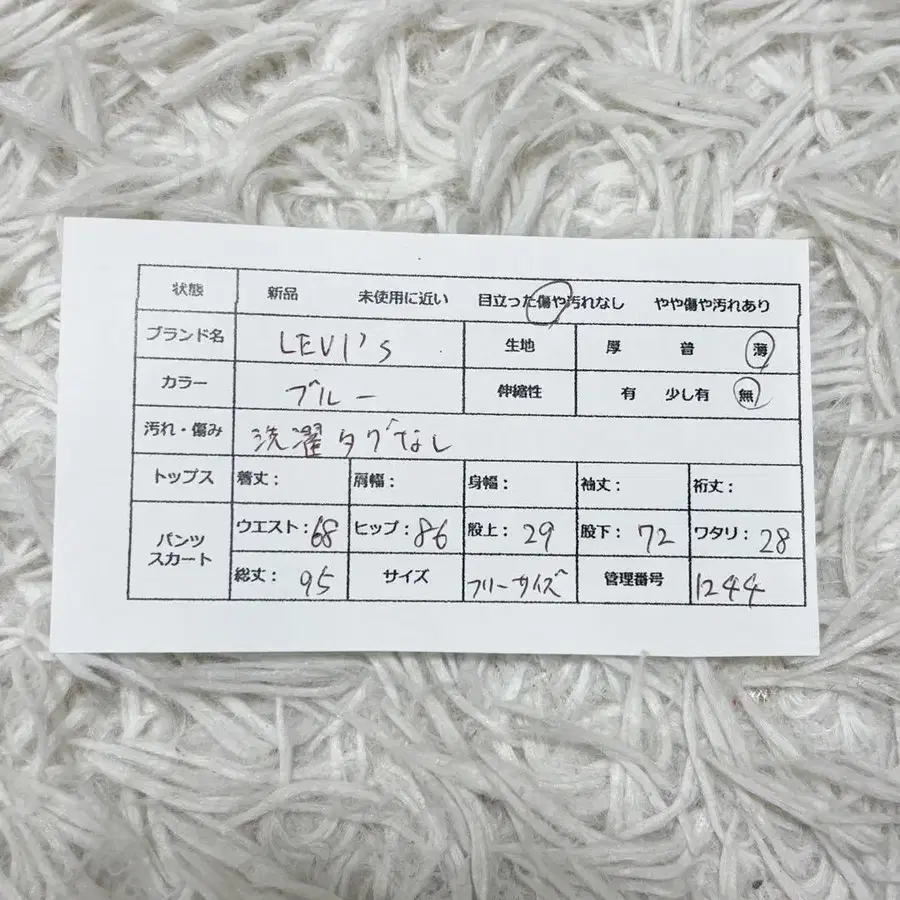 状態 新品 未使用に近い 目立った傷や汚れなし やや傷や汚れあり
ブランド名 LEVI's 生地 厚 普 薄
カラー ブルー 伸縮性 有 少し有 無
汚れ・傷み 洗濯タグなし
トップス 着丈: 肩幅: 身幅: 袖丈: 裄丈:
パンツ スカート ウエスト:68 ヒップ:86 股上:29 股下:72 ワタリ:28
総丈:95 サイズ フリーサイズ 管理番号 1244